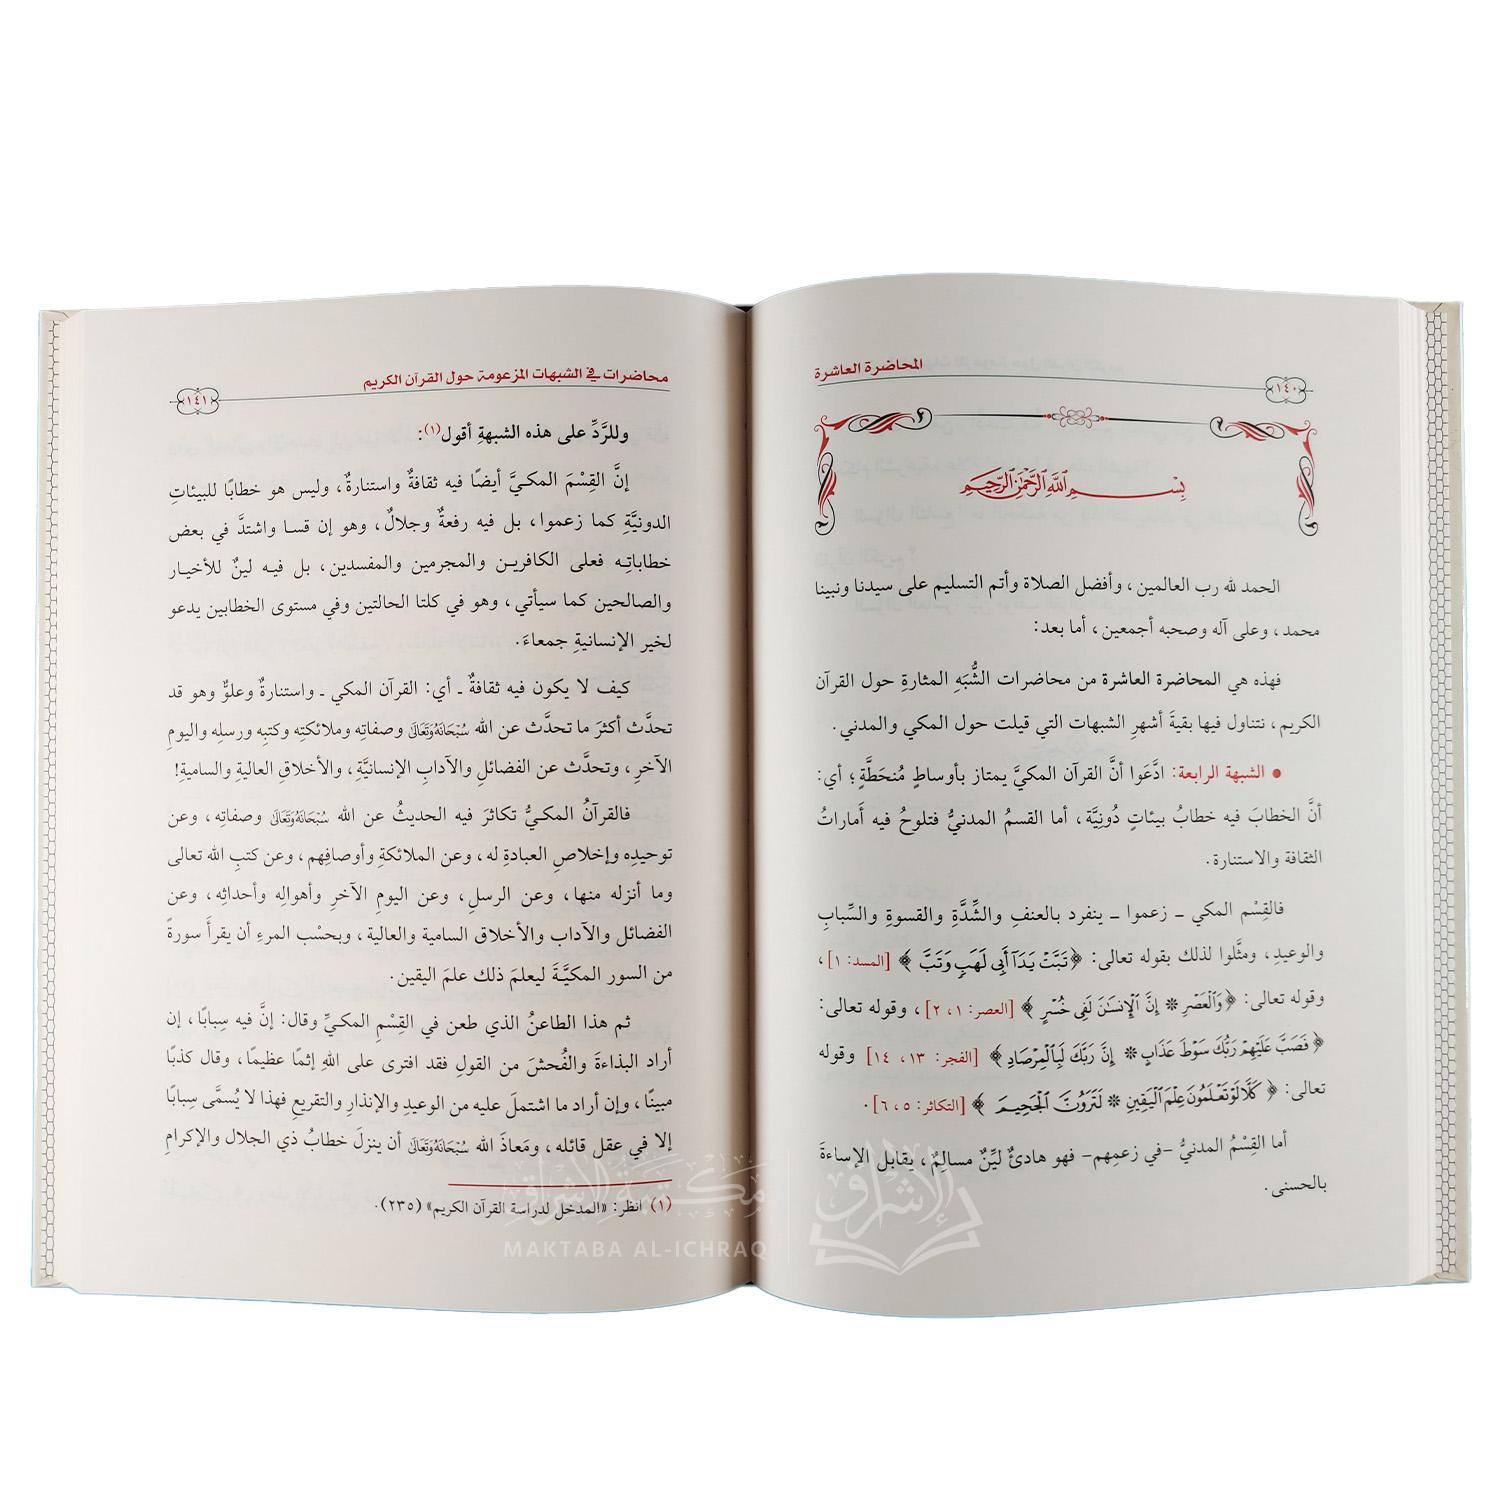 المحاضرة العاشرة
١٤٠
بِسْمِ ٱللَّهِ ٱلرَّحْمَٰنِ ٱلرَّحِيمِ
الحمد لله رب العالمين، وأفضل الصلاة وأتم التسليم على سيدنا ونبينا
محمد، وعلى آله وصحبه أجمعين، أما بعد:
فهذه هي المحاضرة العاشرة من محاضرات الشُّبَهِ المثارةِ حول القرآن
الكريم، نتناول فيها بقيةَ أشهرِ الشبهات التي قيلت حول المكي والمدني.
● الشبهة الرابعة: ادَّعَوا أنَّ القرآن المكيَّ يمتاز بأوساطٍ مُنحَطَّةٍ؛ أي:
أنَّ الخطابَ فيه خطابُ بيئاتٍ دُونِيَّة، أما القسمُ المدنيُّ فتلوحُ فيه أَماراتُ
الثقافة والاستنارة.
فالقِسْم المكي ـ زعموا ـ ينفرد بالعنفِ والشِّدَّةِ والقسوةِ والسِّبابِ
والوعيدِ، ومثَّلوا لذلك بقوله تعالى: ﴿تَبَّتْ يَدَآ أَبِى لَهَبٍ وَتَبَّ﴾ [المسد: ١]،
وقوله تعالى: ﴿وَٱلْعَصْرِ ۞ إِنَّ ٱلْإِنسَٰنَ لَفِى خُسْرٍ﴾ [العصر: ١، ٢]، وقوله تعالى:
﴿فَصَبَّ عَلَيْهِمْ رَبُّكَ سَوْطَ عَذَابٍ ۞ إِنَّ رَبَّكَ لَبِٱلْمِرْصَادِ﴾ [الفجر: ١٣، ١٤] وقوله
تعالى: ﴿كَلَّا لَوْ تَعْلَمُونَ عِلْمَ ٱلْيَقِينِ ۞ لَتَرَوُنَّ ٱلْجَحِيمَ﴾ [التكاثر: ٥، ٦].
أما القِسْمُ المدنيُّ -في زعمِهم- فهو هادئٌ ليِّنٌ مسالِمٌ، يقابل الإساءةَ
بالحسنى.
محاضرات في الشبهات المزعومة حول القرآن الكريم
١٤١
وللرَّدِّ على هذه الشبهةِ أقول(١):
إنَّ القِسْمَ المكيَّ أيضًا فيه ثقافةٌ واستنارةٌ، وليس هو خطابًا للبيئاتِ
الدونيَّةِ كما زعموا، بل فيه رفعةٌ وجلالٌ، وهو إن قسا واشتدَّ في بعض
خطاباتِه فعلى الكافرين والمجرمين والمفسدين، بل فيه لينٌ للأخيار
والصالحين كما سيأتي، وهو في كلتا الحالتين وفي مستوى الخطابين يدعو
لخير الإنسانيةِ جمعاءَ.
كيف لا يكون فيه ثقافةٌ ـ أي: القرآن المكي ـ واستنارةٌ وعلوٌّ وهو قد
تحدَّث أكثرَ ما تحدَّث عن الله سُبْحَانَهُ وَتَعَالَى وصفاتِه وملائكتِه وكتبِه ورسلِه واليومِ
الآخرِ، وتحدَّث عن الفضائلِ والآدابِ الإنسانيَّةِ، والأخلاقِ العاليةِ والساميةِ!
فالقرآنُ المكيُّ تكاثرَ فيه الحديثُ عن الله سُبْحَانَهُ وَتَعَالَى وصفاتِه، وعن
توحيدِه وإخلاصِ العبادةِ له، وعن الملائكةِ وأوصافِهم، وعن كتبِ الله تعالى
وما أنزله منها، وعن الرسلِ، وعن اليومِ الآخرِ وأهوالِه وأحداثِه، وعن
الفضائل والآداب والأخلاق السامية والعالية، وبحسْب المرءِ أن يقرأَ سورةً
من السور المكيَّةَ ليعلمَ ذلك علمَ اليقين.
ثم هذا الطاعنُ الذي طعن في القِسْمِ المكيِّ وقال: إنَّ فيه سِبابًا، إن
أراد البذاءةَ والفُحشَ من القولِ فقد افترى على اللهِ إثمًا عظيمًا، وقال كذبًا
مبينًا، وإن أراد ما اشتملَ عليه من الوعيدِ والإنذارِ والتقريعِ فهذا لا يُسمَّى سِبابًا
إلا في عقل قائله، ومَعاذَ الله سُبْحَانَهُ وَتَعَالَى أن ينزلَ خطابُ ذي الجلال والإكرامِ
(١) انظر: «المدخل لدراسة القرآن الكريم» (٢٣٥).
مكتبة الإشراق
MAKTABA AL-ICHRAQ
الإشراق